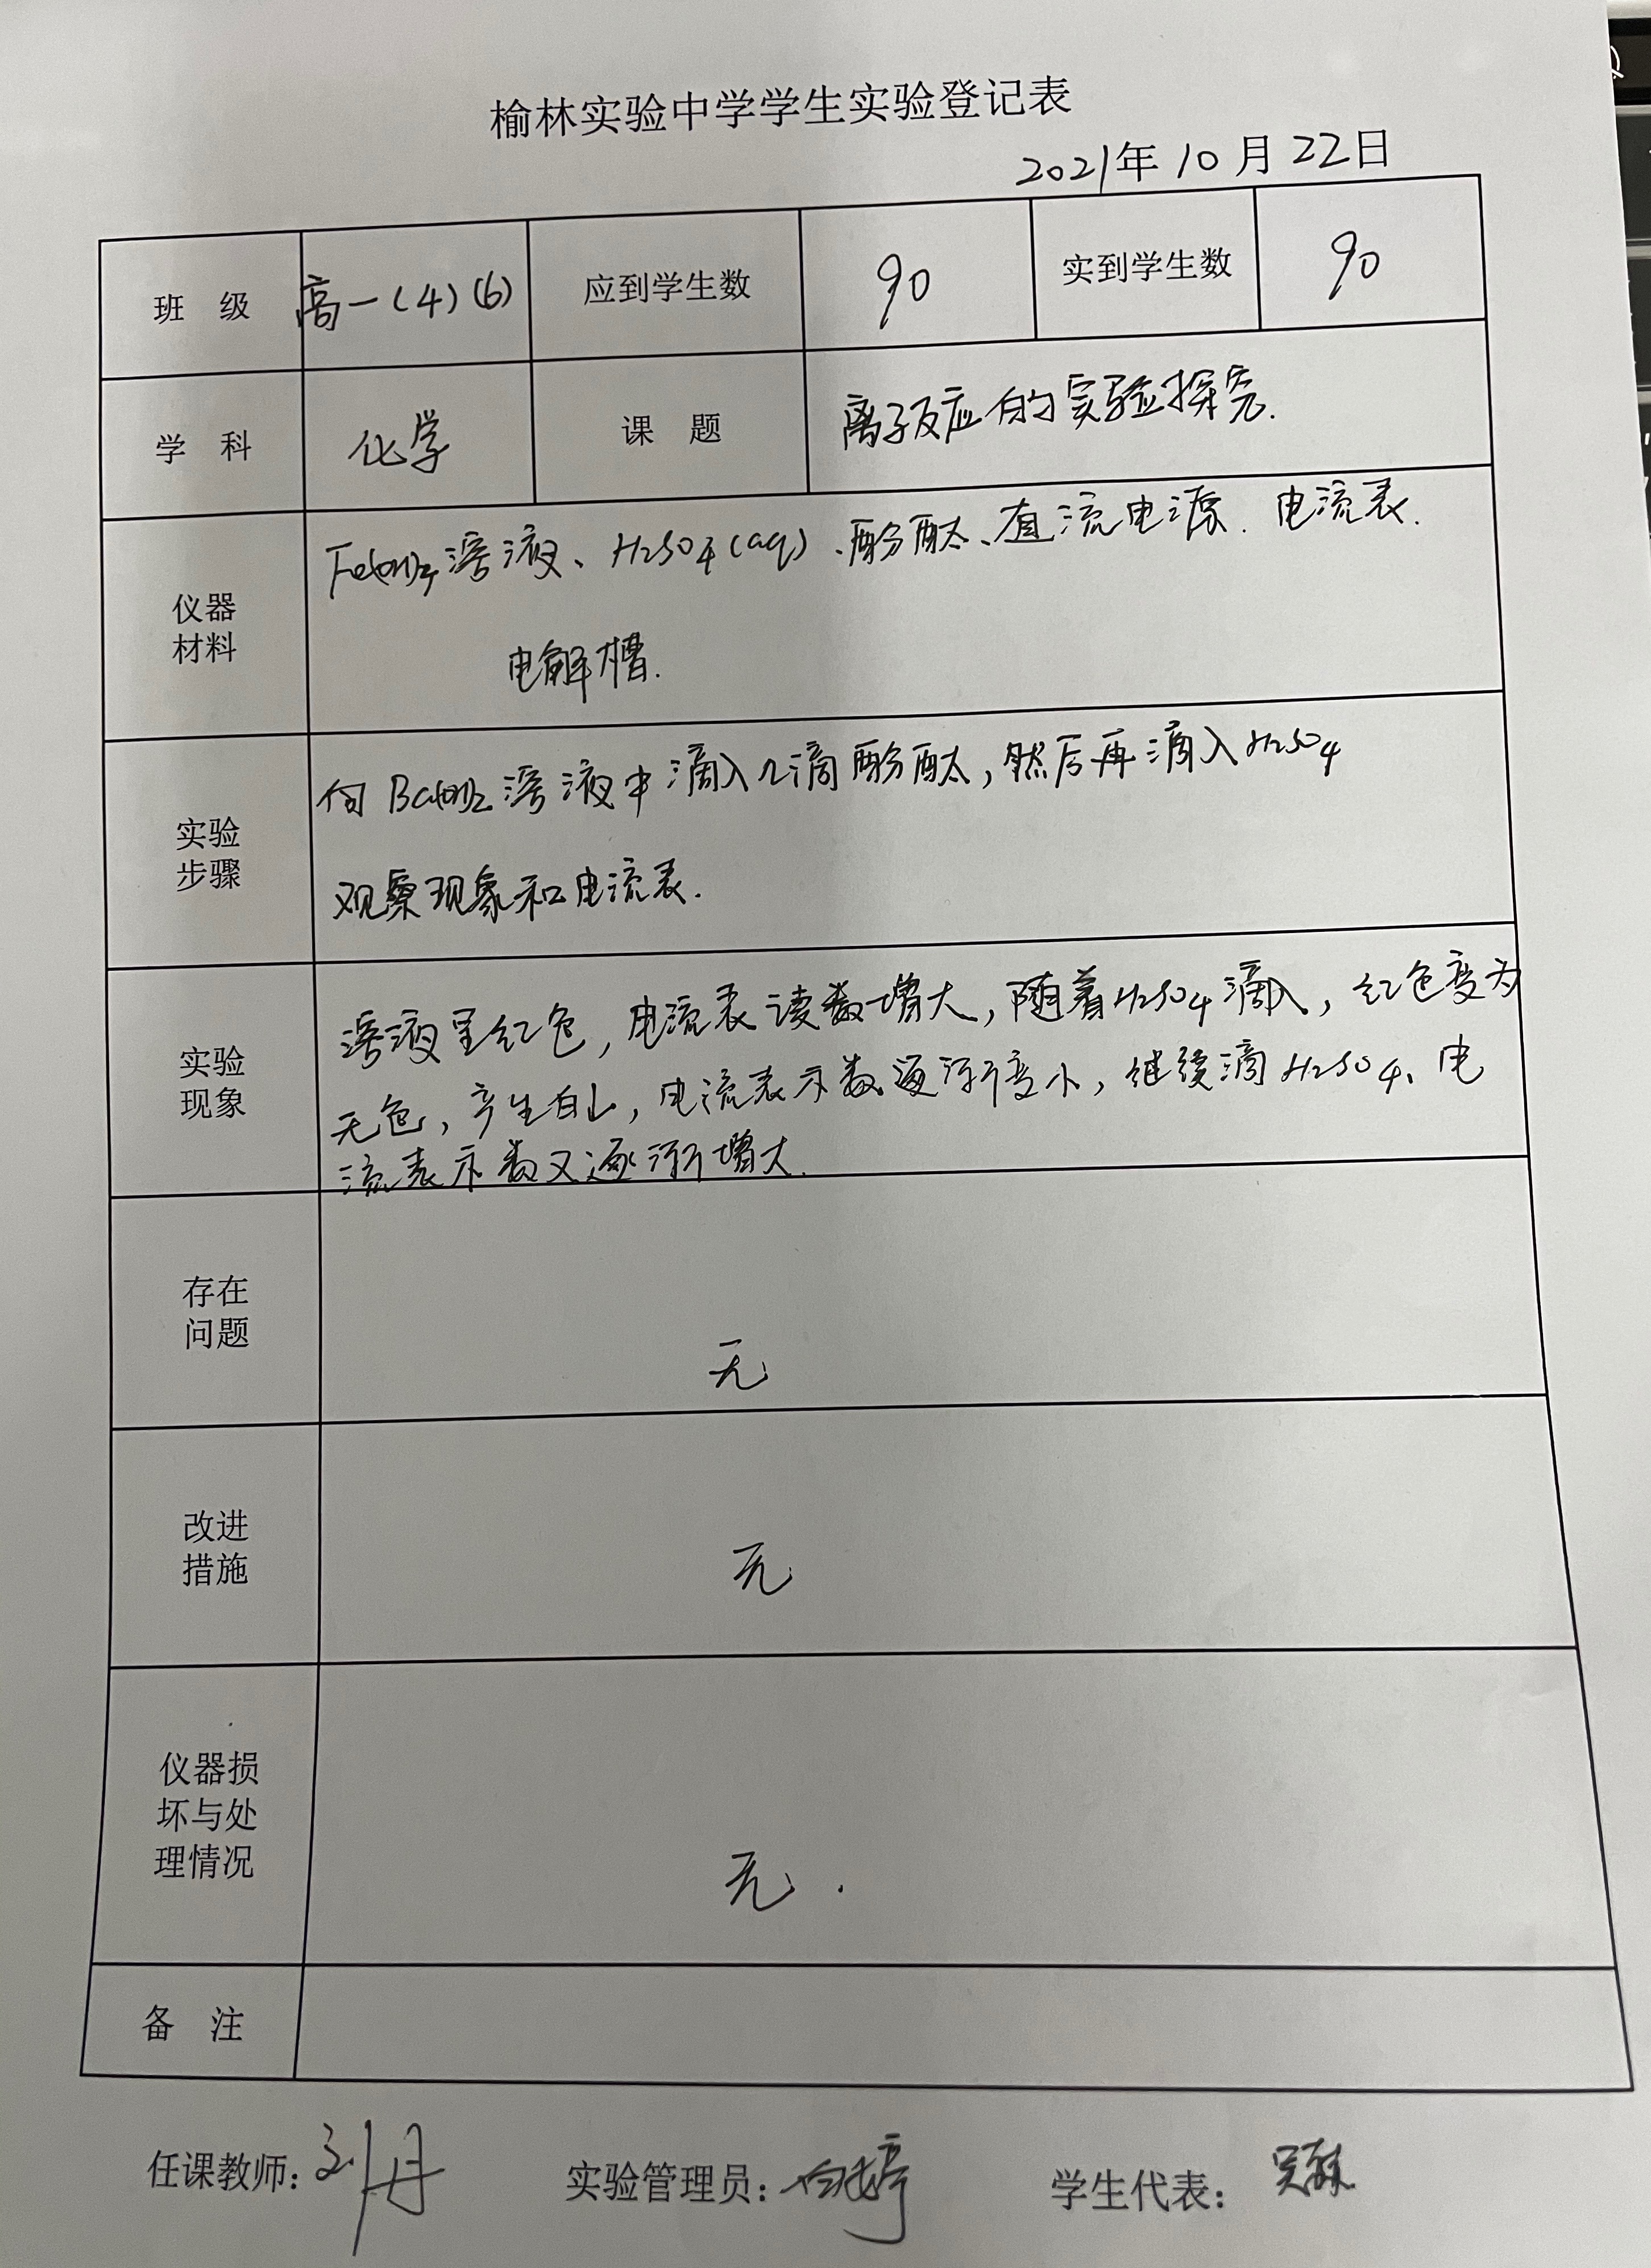 榆林实验中学学生实验登记表
2021年10月22日
班 级 高一(4)(6) 应到学生数 90 实到学生数 90
学 科 化学 课 题 离子反应的实验探究.
仪器
材料
溶液、H2SO4(aq)、酚酞、直流电源. 电流表.
电解槽.
实验
步骤
向Ba(OH)2溶液中滴入几滴酚酞,然后再滴入H2SO4
观察现象和电流表.
实验
现象
溶液呈红色,电流表读数增大,随着H2SO4滴入,红色变为
无色,产生白↓,电流表示数逐渐变小,继续滴H2SO4、电
流表示数又逐渐增大.
存在
问题
无
改进
措施
无
仪器损
坏与处
理情况
无.
备 注
任课教师:刘丹 实验管理员: 学生代表: